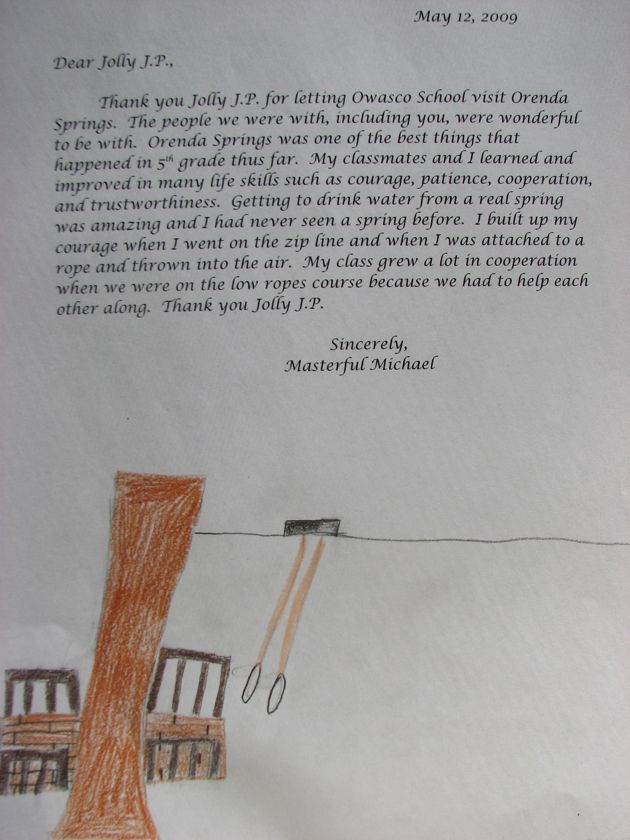 May 12, 2009
Dear Jolly J.P.,
Thank you Jolly J.P. for letting Owasco School visit Orenda
Springs. The people we were with, including you, were wonderful
to be with. Orenda Springs was one of the best things that
happened in 5th grade thus far. My classmates and I learned and
improved in many life skills such as courage, patience, cooperation,
and trustworthiness. Getting to drink water from a real spring
was amazing and I had never seen a spring before. I built up my
courage when I went on the zip line and when I was attached to a
rope and thrown into the air. My class grew a lot in cooperation
when we were on the low ropes course because we had to help each
other along. Thank you Jolly J.P.
Sincerely,
Masterful Michael